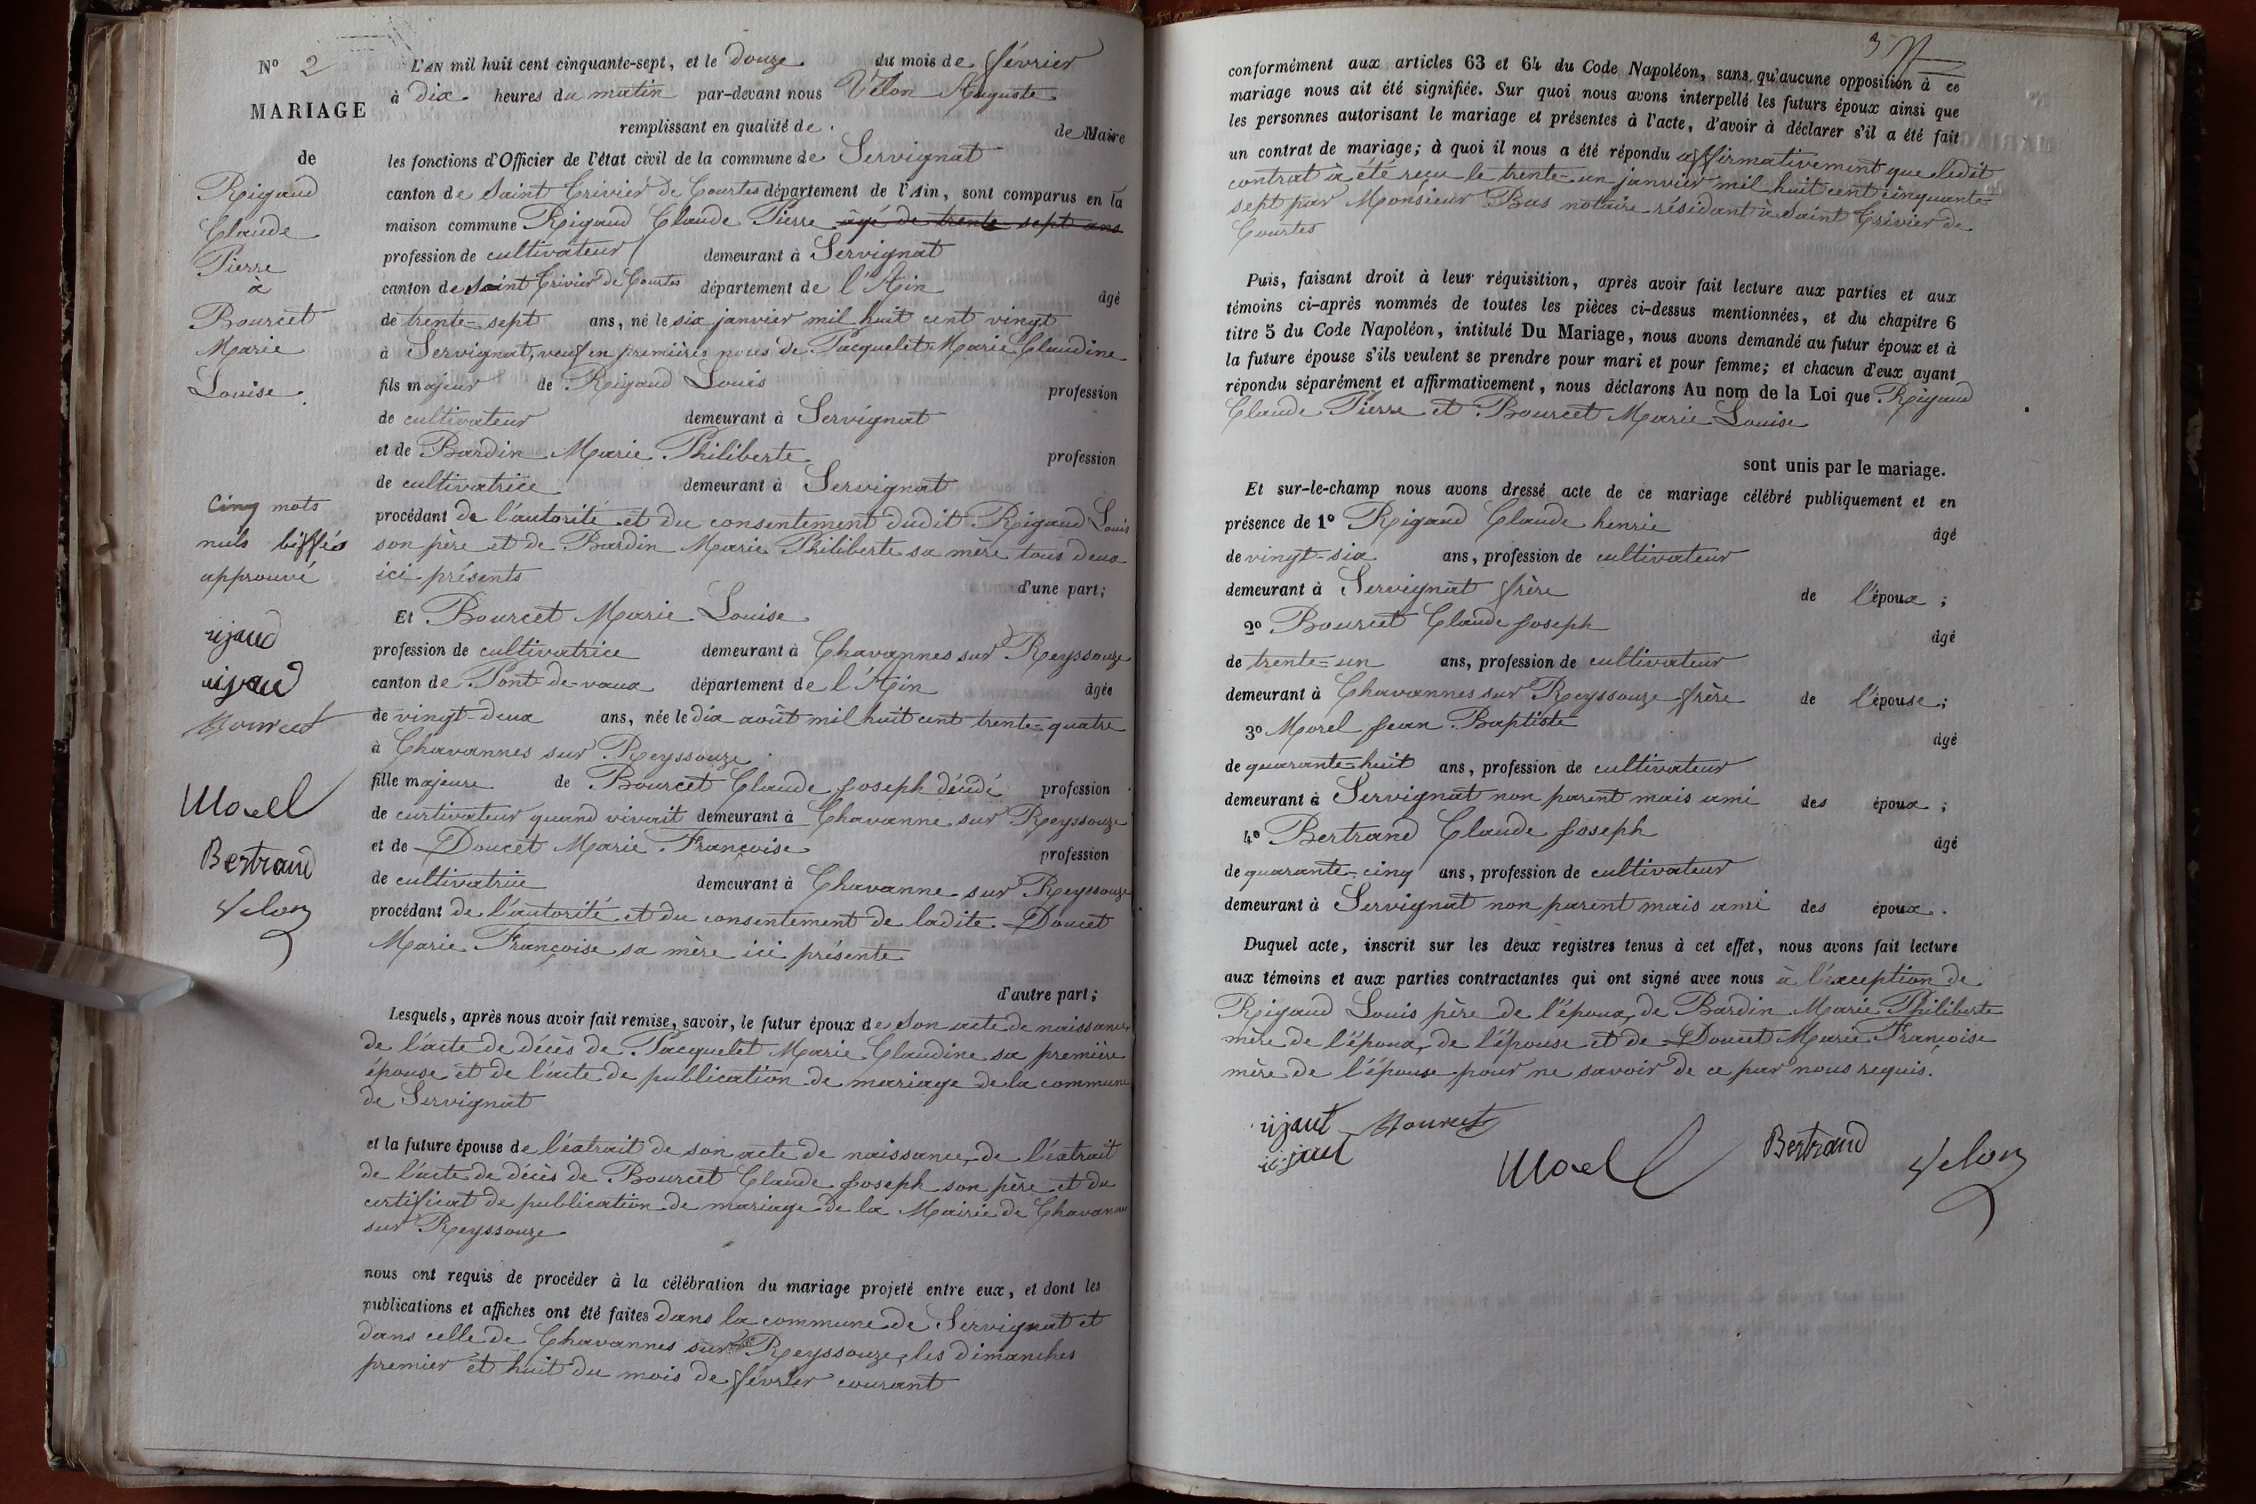 N° 2
MARIAGE
de
Rigaud
Claude
Pierre
à
Bourcet
Marie
Louise
Cinq mots
nuls biffés
approuvé
rijaud
rijaud
Bourcet
Morel
Bertrand
Velon
L'AN mil huit cent cinquante-sept, et le douze du mois de février
à dix heures du matin par-devant nous Velon Auguste
remplissant en qualité de de Maire
les fonctions d'Officier de l'état civil de la commune de Servignat
canton de Saint Trivier de Courtes département de l'Ain, sont comparus en la
maison commune Rigaud Claude Pierre âgé de trente sept ans
profession de cultivateur demeurant à Servignat
canton de Saint Trivier de Courtes département de l'Ain âgé
de trente-sept ans, né le six janvier mil huit cent vingt
à Servignat, veuf en premières noces de Pacquelet Marie Claudine
fils majeur de Rigaud Louis profession
de cultivateur demeurant à Servignat
et de Bardin Marie Philiberte profession
de cultivatrice demeurant à Servignat
procédant de l'autorité et du consentement dudit Rigaud Louis
son père et de Bardin Marie Philiberte sa mère tous deux
ici présents
d'une part;
Et Bourcet Marie Louise
profession de cultivatrice demeurant à Chavannes sur Reyssouze
canton de Pont-de-vaux département de l'Ain âgée
de vingt-deux ans, née le dix août mil huit cent trente-quatre
à Chavannes sur Reyssouze
fille majeure de Bourcet Claude Joseph décédé profession
de curtivateur quand vivait demeurant à Chavanne sur Reyssouze
et de Doucet Marie Françoise profession
de cultivatrice demeurant à Chavanne sur Reyssouze
procédant de l'autorité et du consentement de ladite Doucet
Marie Françoise sa mère ici présente
d'autre part;
Lesquels, après nous avoir fait remise, savoir, le futur époux de son acte de naissance,
de l'acte de décès de Pacquelet Marie Claudine sa première
épouse et de l'acte de publication de mariage de la commune
de Servignat
et la future épouse de l'extrait de son acte de naissance, de l'extrait
de l'acte de décès de Bourcet Claude Joseph son père et du
certificat de publication de mariage de la Mairie de Chavannes
sur Reyssouze
nous ont requis de procéder à la célébration du mariage projeté entre eux, et dont les
publications et affiches ont été faites dans la commune de Servignat et
dans celle de Chavannes sur Reyssouze, les dimanches
premier et huit du mois de février courant
3
conformément aux articles 63 et 64 du Code Napoléon, sans qu'aucune opposition à ce
mariage nous ait été signifiée. Sur quoi nous avons interpellé les futurs époux ainsi que
les personnes autorisant le mariage et présentes à l'acte, d'avoir à déclarer s'il a été fait
un contrat de mariage; à quoi il nous a été répondu affirmativement que ledit
contrat à été reçu le trente-un janvier mil huit cent cinquante-
sept par Monsieur Bas notaire résidant à Saint Trivier de
Courtes
Puis, faisant droit à leur réquisition, après avoir fait lecture aux parties et aux
témoins ci-après nommés de toutes les pièces ci-dessus mentionnées, et du chapitre 6
titre 5 du Code Napoléon, intitulé Du Mariage, nous avons demandé au futur époux et à
la future épouse s'ils veulent se prendre pour mari et pour femme; et chacun d'eux ayant
répondu séparément et affirmativement, nous déclarons Au nom de la Loi que Rigaud
Claude Pierre et Bourcet Marie Louise
sont unis par le mariage.
Et sur-le-champ nous avons dressé acte de ce mariage célébré publiquement et en
présence de 1° Rigaud Claude henrie âgé
de vingt-six ans, profession de cultivateur
demeurant à Servignat frère de l'époux;
2° Bourcet Claude Joseph âgé
de trente-un ans, profession de cultivateur
demeurant à Chavannes sur Reyssouze frère de l'épouse;
3° Morel Jean Baptiste âgé
de quarante-huit ans, profession de cultivateur
demeurant à Servignat non parent mais ami des époux;
4° Bertrand Claude Joseph âgé
de quarante-cinq ans, profession de cultivateur
demeurant à Servignat non parent mais ami des époux.
Duquel acte, inscrit sur les deux registres tenus à cet effet, nous avons fait lecture
aux témoins et aux parties contractantes qui ont signé avec nous à l'exception de
Rigaud Louis père de l'époux, de Bardin Marie Philiberte
mère de l'époux, de l'épouse et de Doucet Marie Françoise
mère de l'épouse pour ne savoir de ce par nous requis.
rijaut Bourcet
rijaud
Morel
Bertrand
Velon